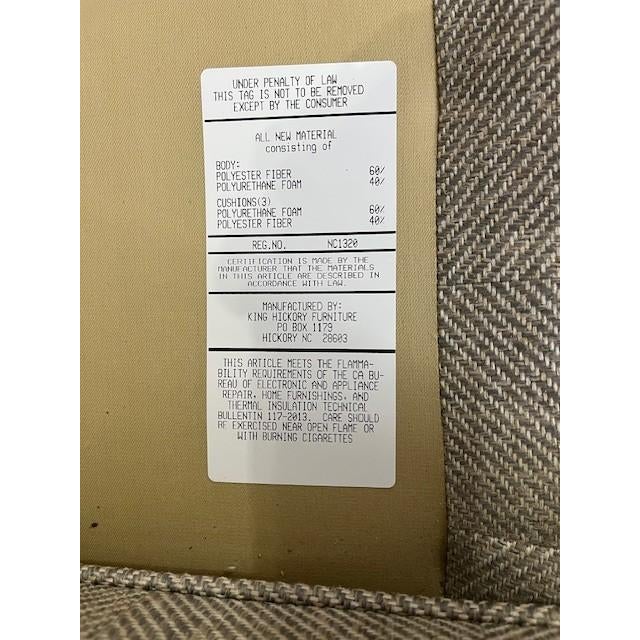 UNDER PENALTY OF LAW
THIS TAG IS NOT TO BE REMOVED
EXCEPT BY THE CONSUMER
ALL NEW MATERIAL
consisting of
BODY:
POLYESTER FIBER 60%
POLYURETHANE FOAM 40%
CUSHIONS(3)
POLYURETHANE FOAM 60%
POLYESTER FIBER 40%
REG.NO. NC1320
CERTIFICATION IS MADE BY THE
MANUFACTURER THAT THE MATERIALS
IN THIS ARTICLE ARE DESCRIBED IN
ACCORDANCE WITH LAW.
MANUFACTURED BY:
KING HICKORY FURNITURE
PO BOX 1179
HICKORY NC 28603
THIS ARTICLE MEETS THE FLAMMA-
BILITY REQUIREMENTS OF THE CA BU-
REAU OF ELECTRONIC AND APPLIANCE
REPAIR, HOME FURNISHINGS, AND
THERMAL INSULATION TECHNICAL
BULLENTIN 117-2013. CARE SHOULD
BE EXERCISED NEAR OPEN FLAME OR
WITH BURNING CIGARETTES